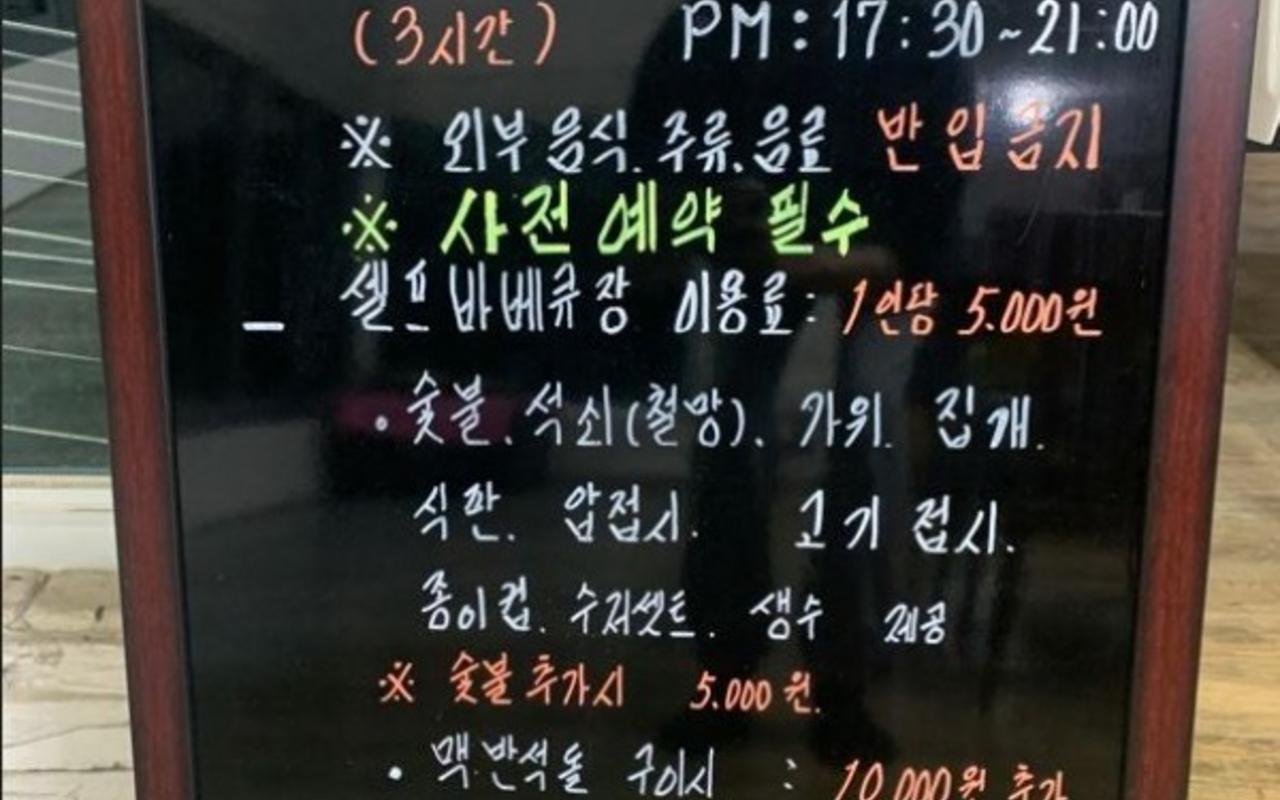 (3시간) PM : 17:30~21:00
※ 외부음식.주류.음료 반입금지
※ 사전예약 필수
- 셀프바베큐장 이용료: 1인당 5.000원
• 숯불. 석쇠(철망). 가위. 집개.
식판. 압접시. 고기접시.
종이컵. 수저셋트. 생수 제공
※ 숯불추가시 5.000원.
• 맥반석돌 구이시 : 10,000원 추가